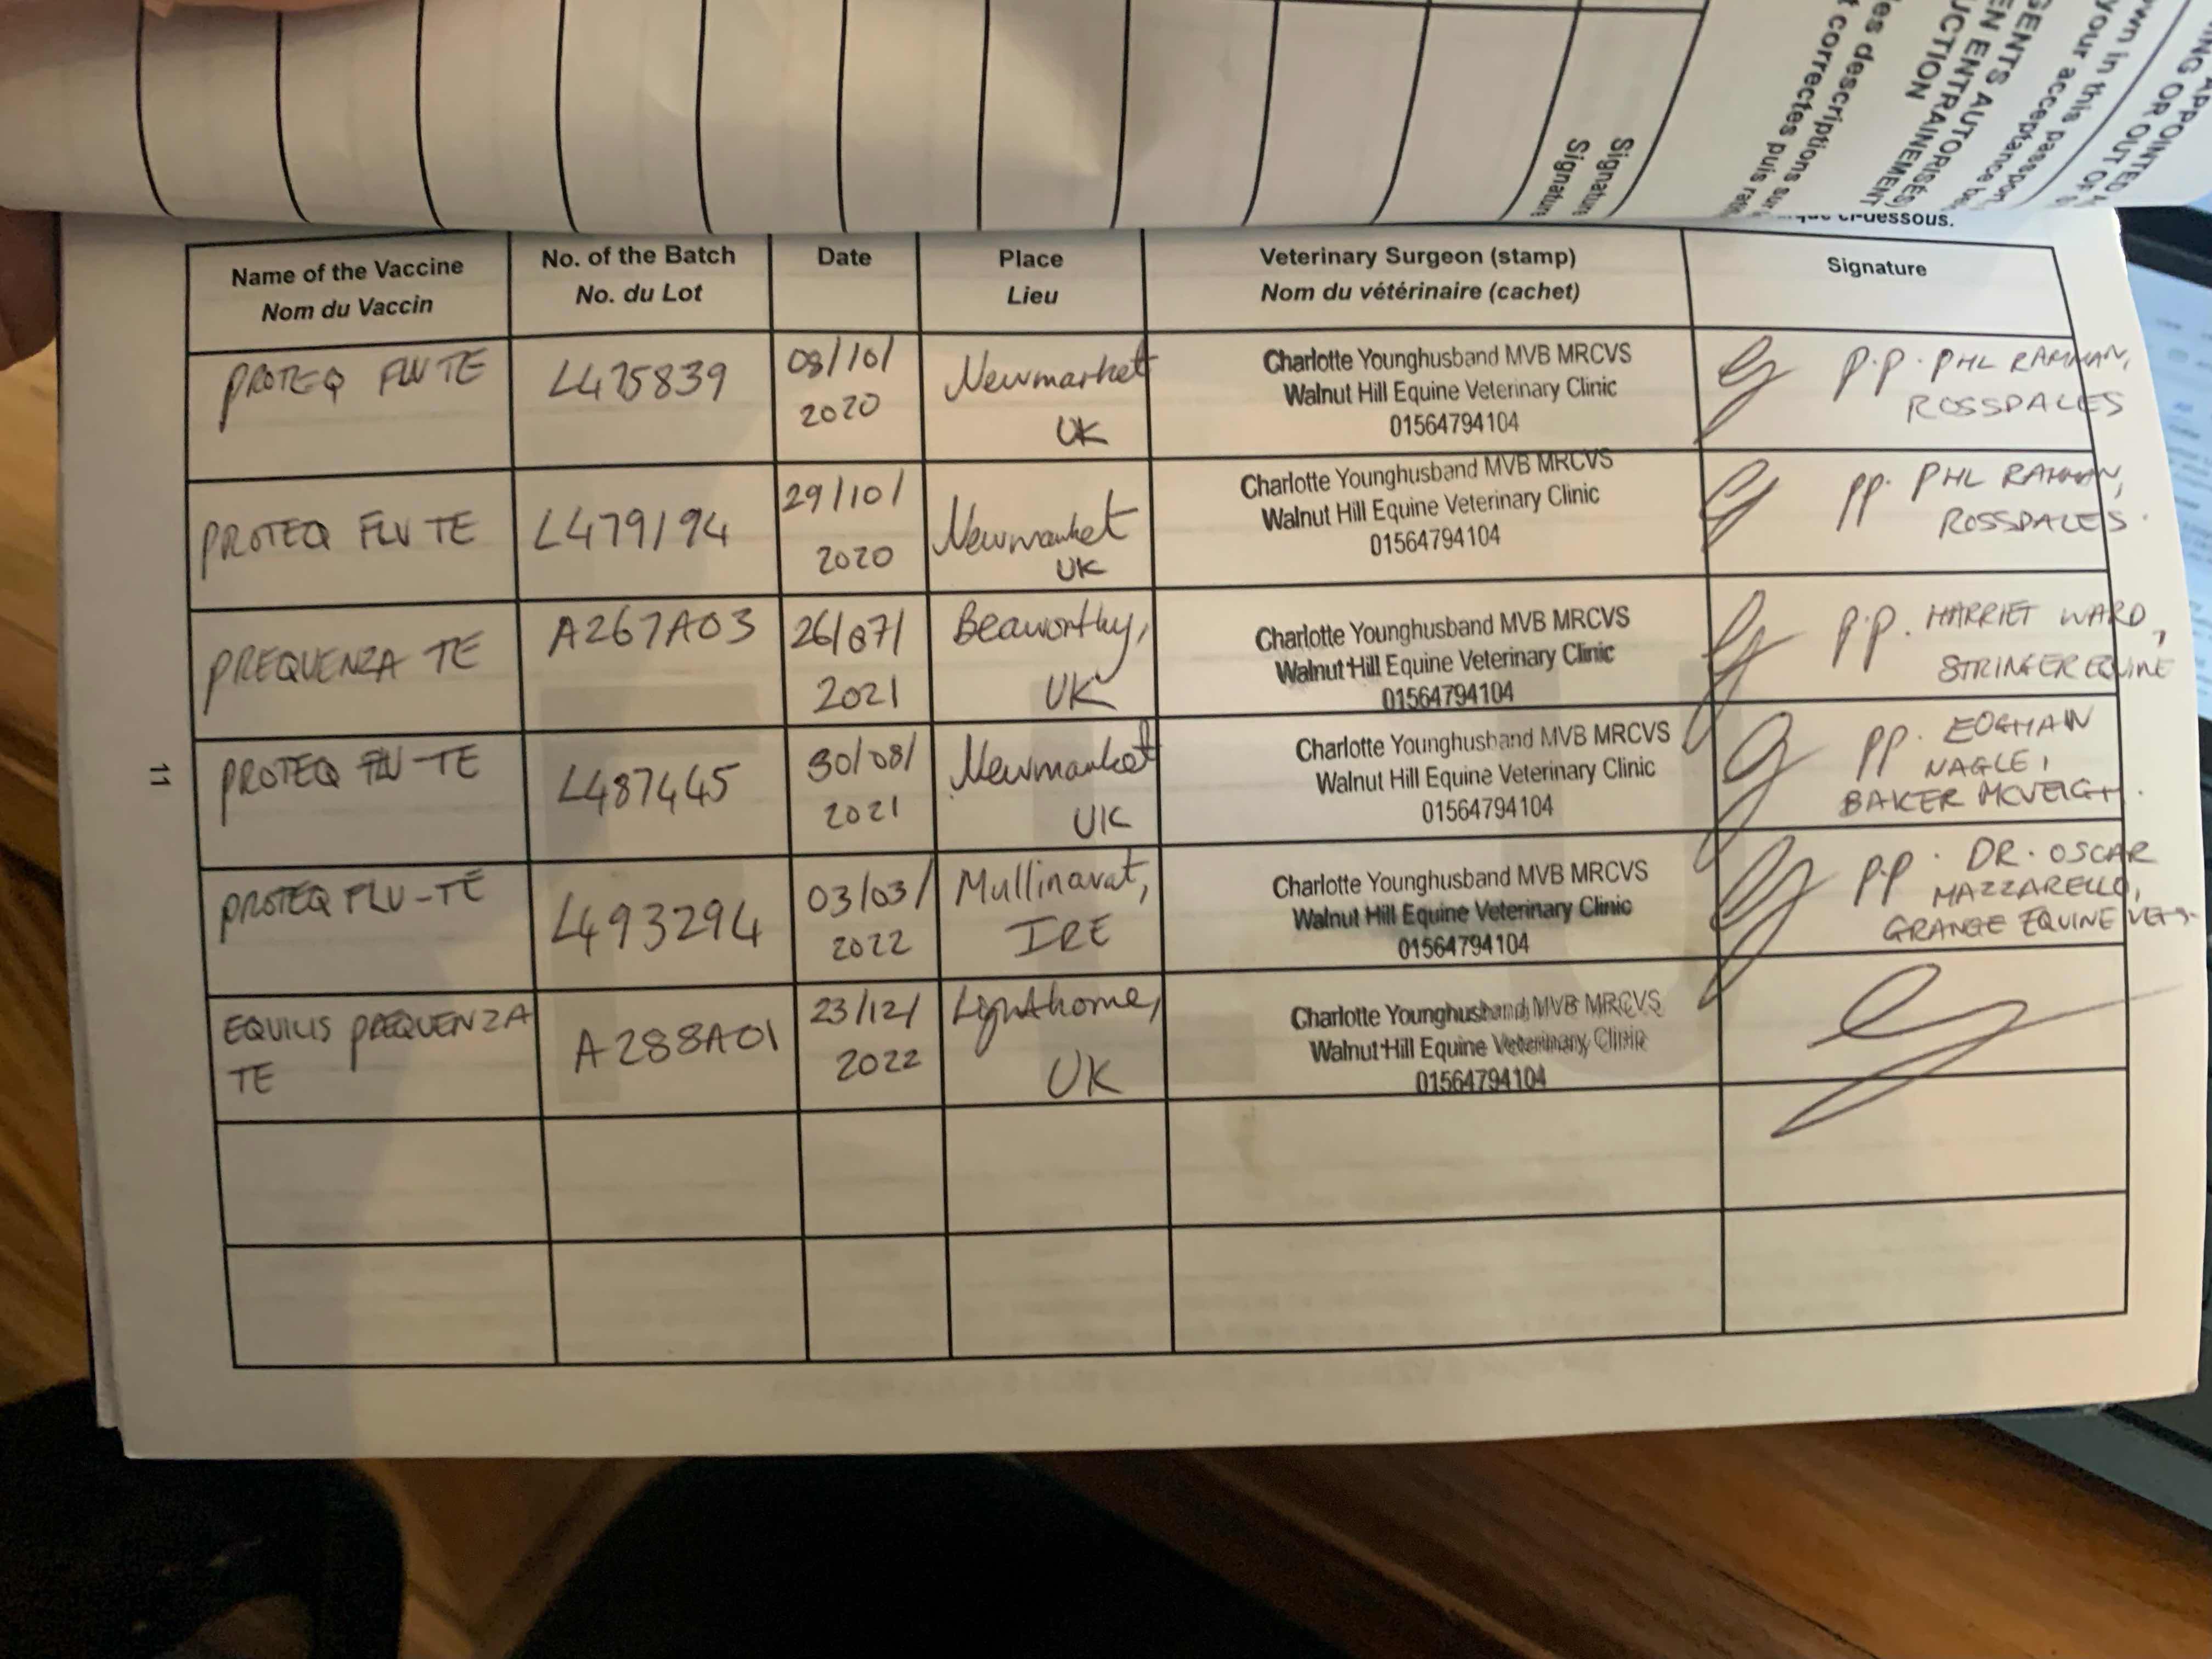 Signature
Signature
les descriptions sur
t correctes puis
GENTS AUTORISÉS)
EN ENTRAINEMENT
UCTION
wn in this passpor
your acceptance be
ING APPOINTED A
ING OR OUT OF
ci-dessous.
Name of the Vaccine
Nom du Vaccin
No. of the Batch
No. du Lot
Date
Place
Lieu
Veterinary Surgeon (stamp)
Nom du vétérinaire (cachet)
Signature
PROTEQ FLU TE
L475839
08/10/
2020
Newmarket
UK
Charlotte Younghusband MVB MRCVS
Walnut Hill Equine Veterinary Clinic
01564794104
P.P. PHL RAHMAN,
ROSSDALES
PROTEQ FLU TE
L479194
29/10/
2020
Newmarket
UK
Charlotte Younghusband MVB MRCVS
Walnut Hill Equine Veterinary Clinic
01564794104
PP. PHL RAHMAN,
ROSSDALES.
PREQUENZA TE
A267A03
26/07/
2021
Beaworthy,
UK
Charlotte Younghusband MVB MRCVS
Walnut Hill Equine Veterinary Clinic
01564794104
P.P. HARRIET WARD,
STRINGER EQUINE
PROTEQ FLU-TE
L487445
30/08/
2021
Newmarket
UK
Charlotte Younghusband MVB MRCVS
Walnut Hill Equine Veterinary Clinic
01564794104
PP. EOGHAN
NAGLE,
BAKER MCVEIGH.
PROTEQ FLU-TE
L493294
03/03/
2022
Mullinavat,
IRE
Charlotte Younghusband MVB MRCVS
Walnut Hill Equine Veterinary Clinic
01564794104
PP. DR. OSCAR
MAZZARELLO,
GRANGE EQUINE VETS.
EQUILIS PREQUENZA
TE
A288A01
23/12/
2022
Lighthorne,
UK
Charlotte Younghusband MVB MRCVS
Walnut Hill Equine Veterinary Clinic
01564794104
11